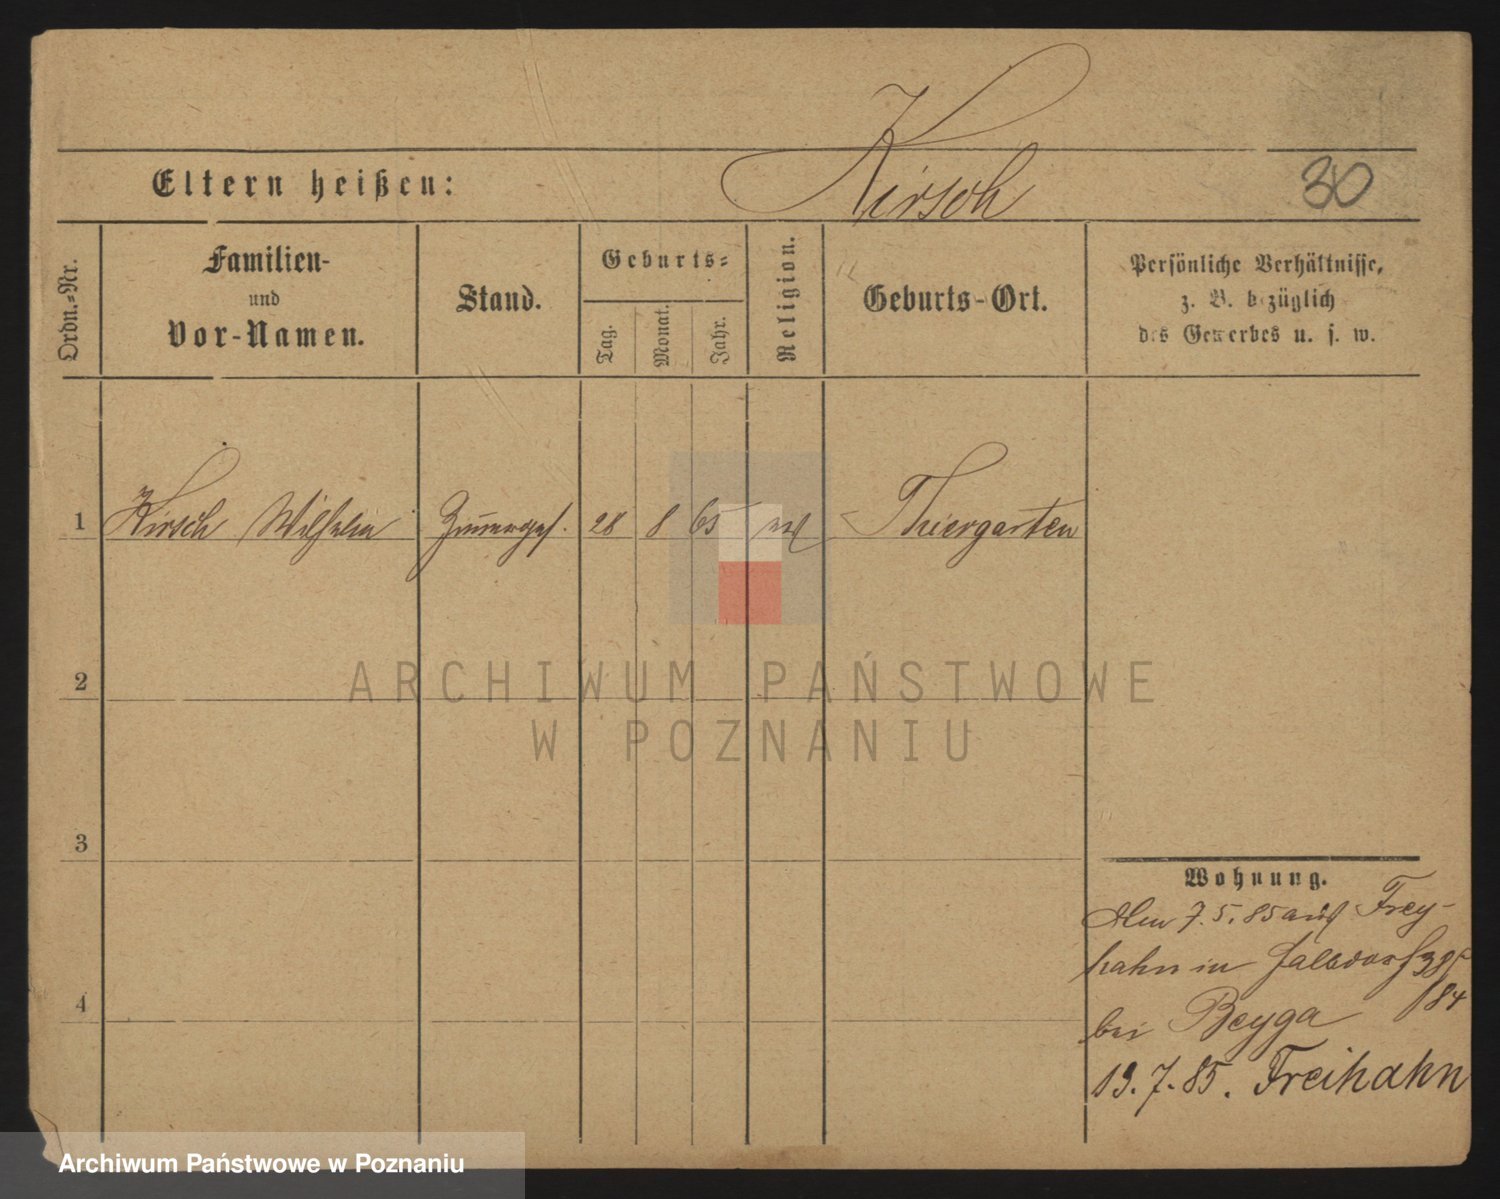 Kirsch
Eltern heißen:
30
Ordn.=Nr.
Familien-
und
Vor-Namen.
Stand.
Geburts=
Tag.
Monat.
Jahr.
Religion.
Geburts-Ort.
Persönliche Verhältnisse,
z. B. bezüglich
des Gewerbes u. s. w.
1 Kirsch Wilhelm Zimmerges. 28 8 65 Thiergarten
2
3
4
Wohnung.
7. 5. 85 aus Frey-
hahn in
bei Beyga
84
19. 7. 85. Freihahn
ARCHIWUM PAŃSTWOWE
W POZNANIU
Archiwum Państwowe w Poznaniu